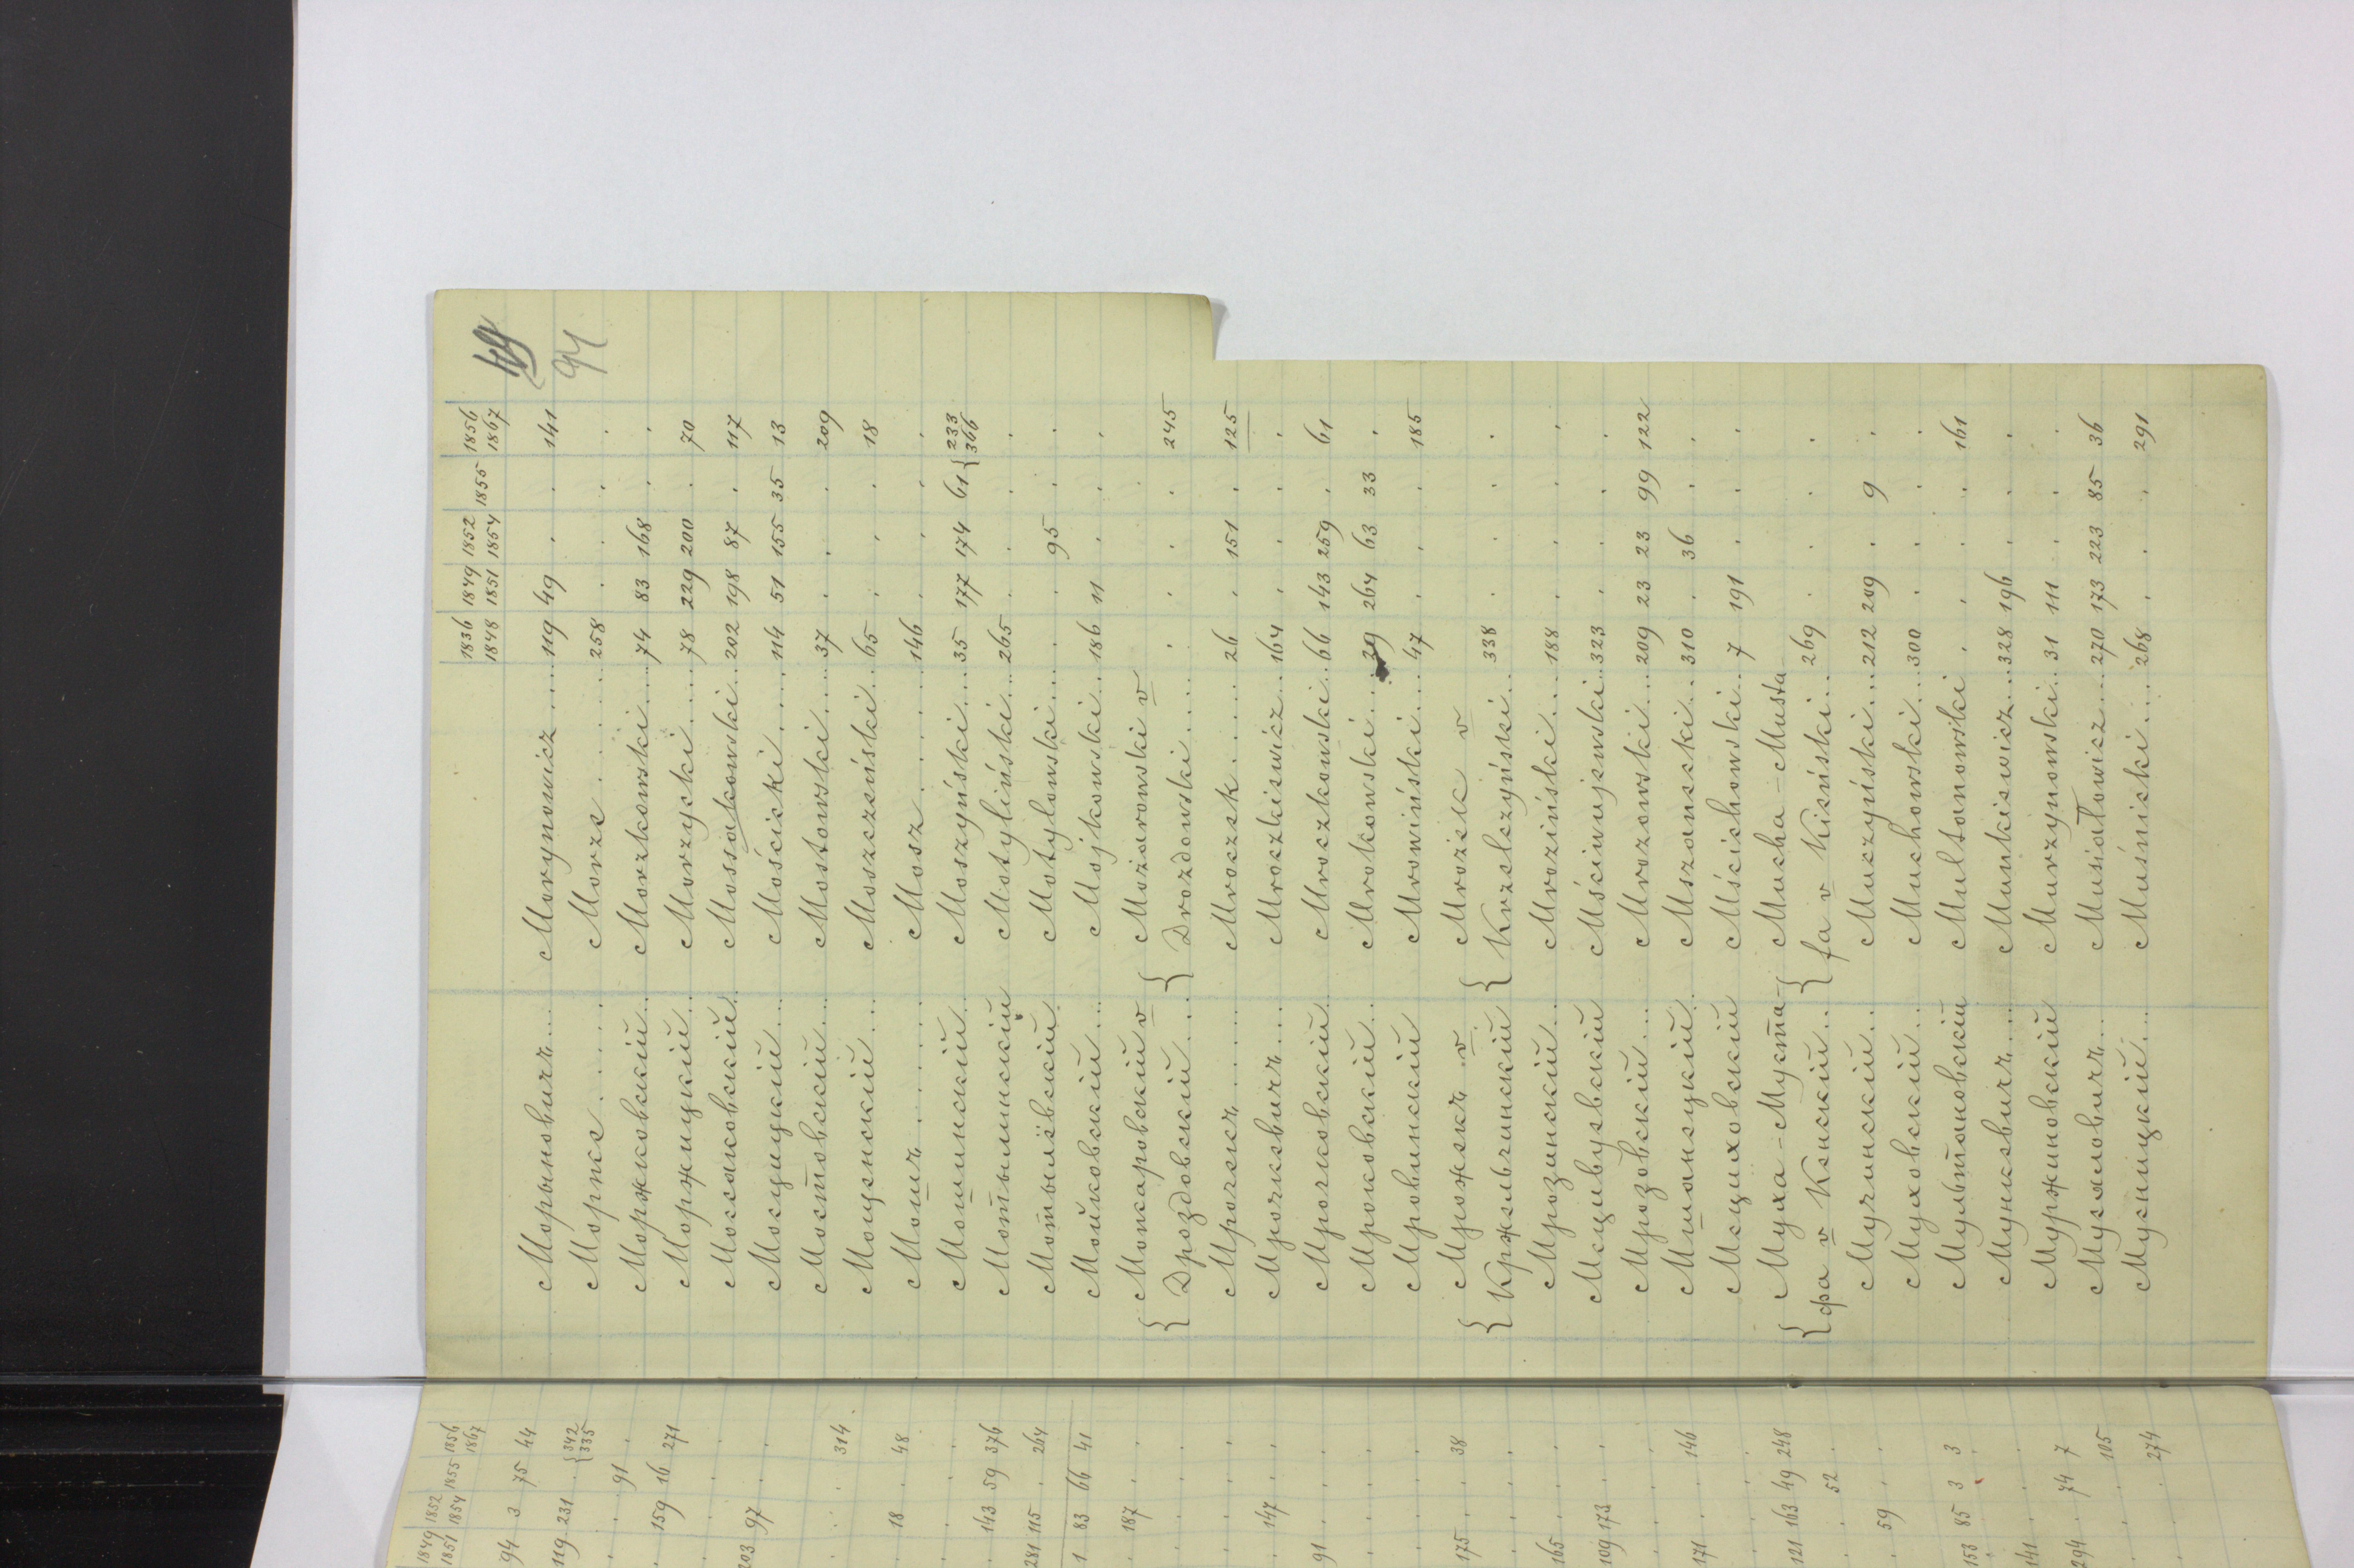 94
1836 1849 1852 1855 1856
1848 1851 1854 1867
Морыновичъ... Morynowicz.... 119 49 . . 141
Морже..... Morze..... 258 . . . .
Моржковскій.. Morzkowski.... 74 83 168 . .
Моржицкій.. Morzycki.... 78 229 200 . 70
Моссаковскій.. Mossakowski.. 202 198 87 . 117
Мосцицкій... Mościcki.... 114 51 155 35 13
Мостовскій... Mostowski.... 37 . . . 209
Мощенскій... Moszczeński.. 65 . . . 18
Мошъ...... Mosz...... 146 . . . .
Мошинскій.. Moszyński.... 35 177 174 61 {233
366
Мотылинскій Motyliński... 265 . . . .
Мотылёвскій. Motylowski.... . . 95 . .
Мойковскій... Mojkowski... 186 11 . . .
Можаровскій v Możarowski v
{Дроздовскій...} Drozdowski.... . . . . 245
Мрочекъ..... Mroczek..... 26 . 151 . 125
Мрочкевичъ... Mroczkiewicz.. 164 . . . .
Мрочковскій.. Mroczkowski.. 66 143 259 . 61
Мроковскій... Mrokowski.... 39 264 63 33 .
Мровинскій Mrowiński... 47 . . . 185
Мрожекъ v. Mrożek v
{Кржельчинскій {Krzelczyński.. 338 . . . .
Мрозинскій... Mroziński... 188 . . . .
Мсцивуевскій Mściwujewski.. 323 . . . .
Мрозовскій... Mrozowski... 209 23 23 99 122
Мшанецкій. Mszanecki... 310 . 36 . .
Мсциховскій Mścichowski.. 7 191 . . .
Муха-Муста- Mucha-Musta-
{фа v Кенскій..} fa v Kieński... 269 . . . .
Мучинскій.. Muczyński... 212 209 . 9 .
Муховскій... Muchowski... 300 . . . .
Мультановскій Multanowski . . . . 161
Мункевичъ.... Munkiewicz... 328 196 . . .
Муржиновскій Murzynowski.. 31 111 . . .
Мусяловичъ... Musiałowicz.... 270 173 223 85 36
Мусницкій... Muśnicki.... 268 . . . 291
1849 1852 1855 1856
1851 1854 1867
94 3 75 44
119 231 . {342
335
. . 91 .
. 159 16 271
203 97 . .
. . . 314
. 18 . 48
. 143 59 376
281 115 . 264
1 83 66 41
. 187 . .
. 147 . .
91 . . .
175 . . 38
165 . . .
109 173 . .
171 . . 146
121 163 49 248
. . 52 .
. 59 . .
153 85 3 3
141 . . .
294 . 74 7
. . . 105
. . . 274